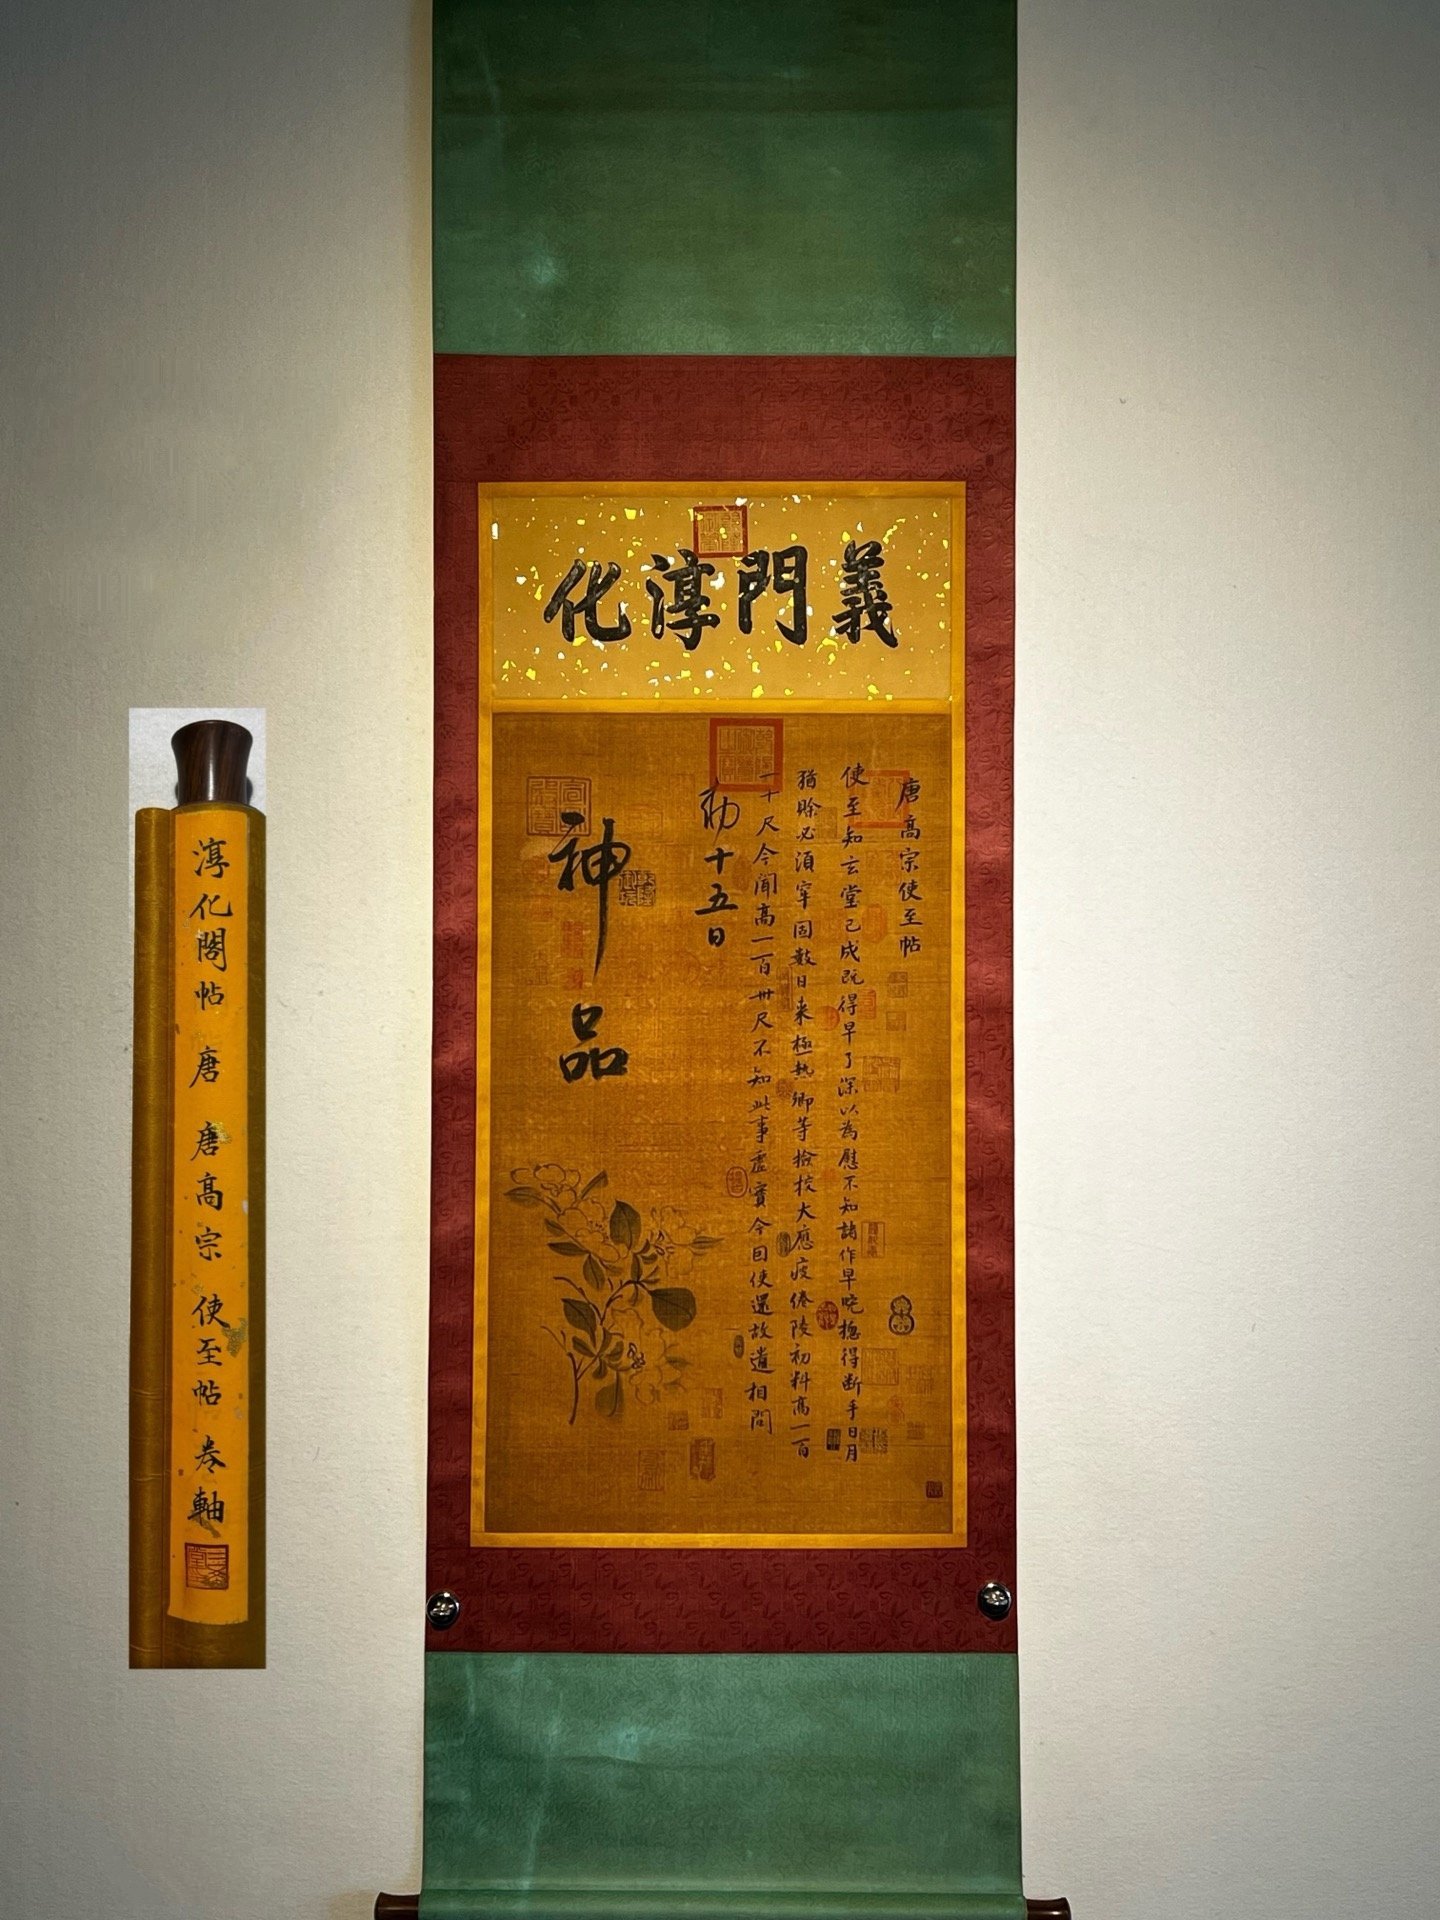 義門淳化
唐高宗使至帖
使至知玄堂已成既得早了深以為慰不知諸作早晚揔得斷手日月
猶賒必須牢固數日来極熱卿等撿校大應疲倦陵初料高一百
一十尺今聞高一百卅尺不知此事虛實今因使還故遣相問
勅十五日
神品
淳化閣帖 唐 唐高宗 使至帖 卷軸